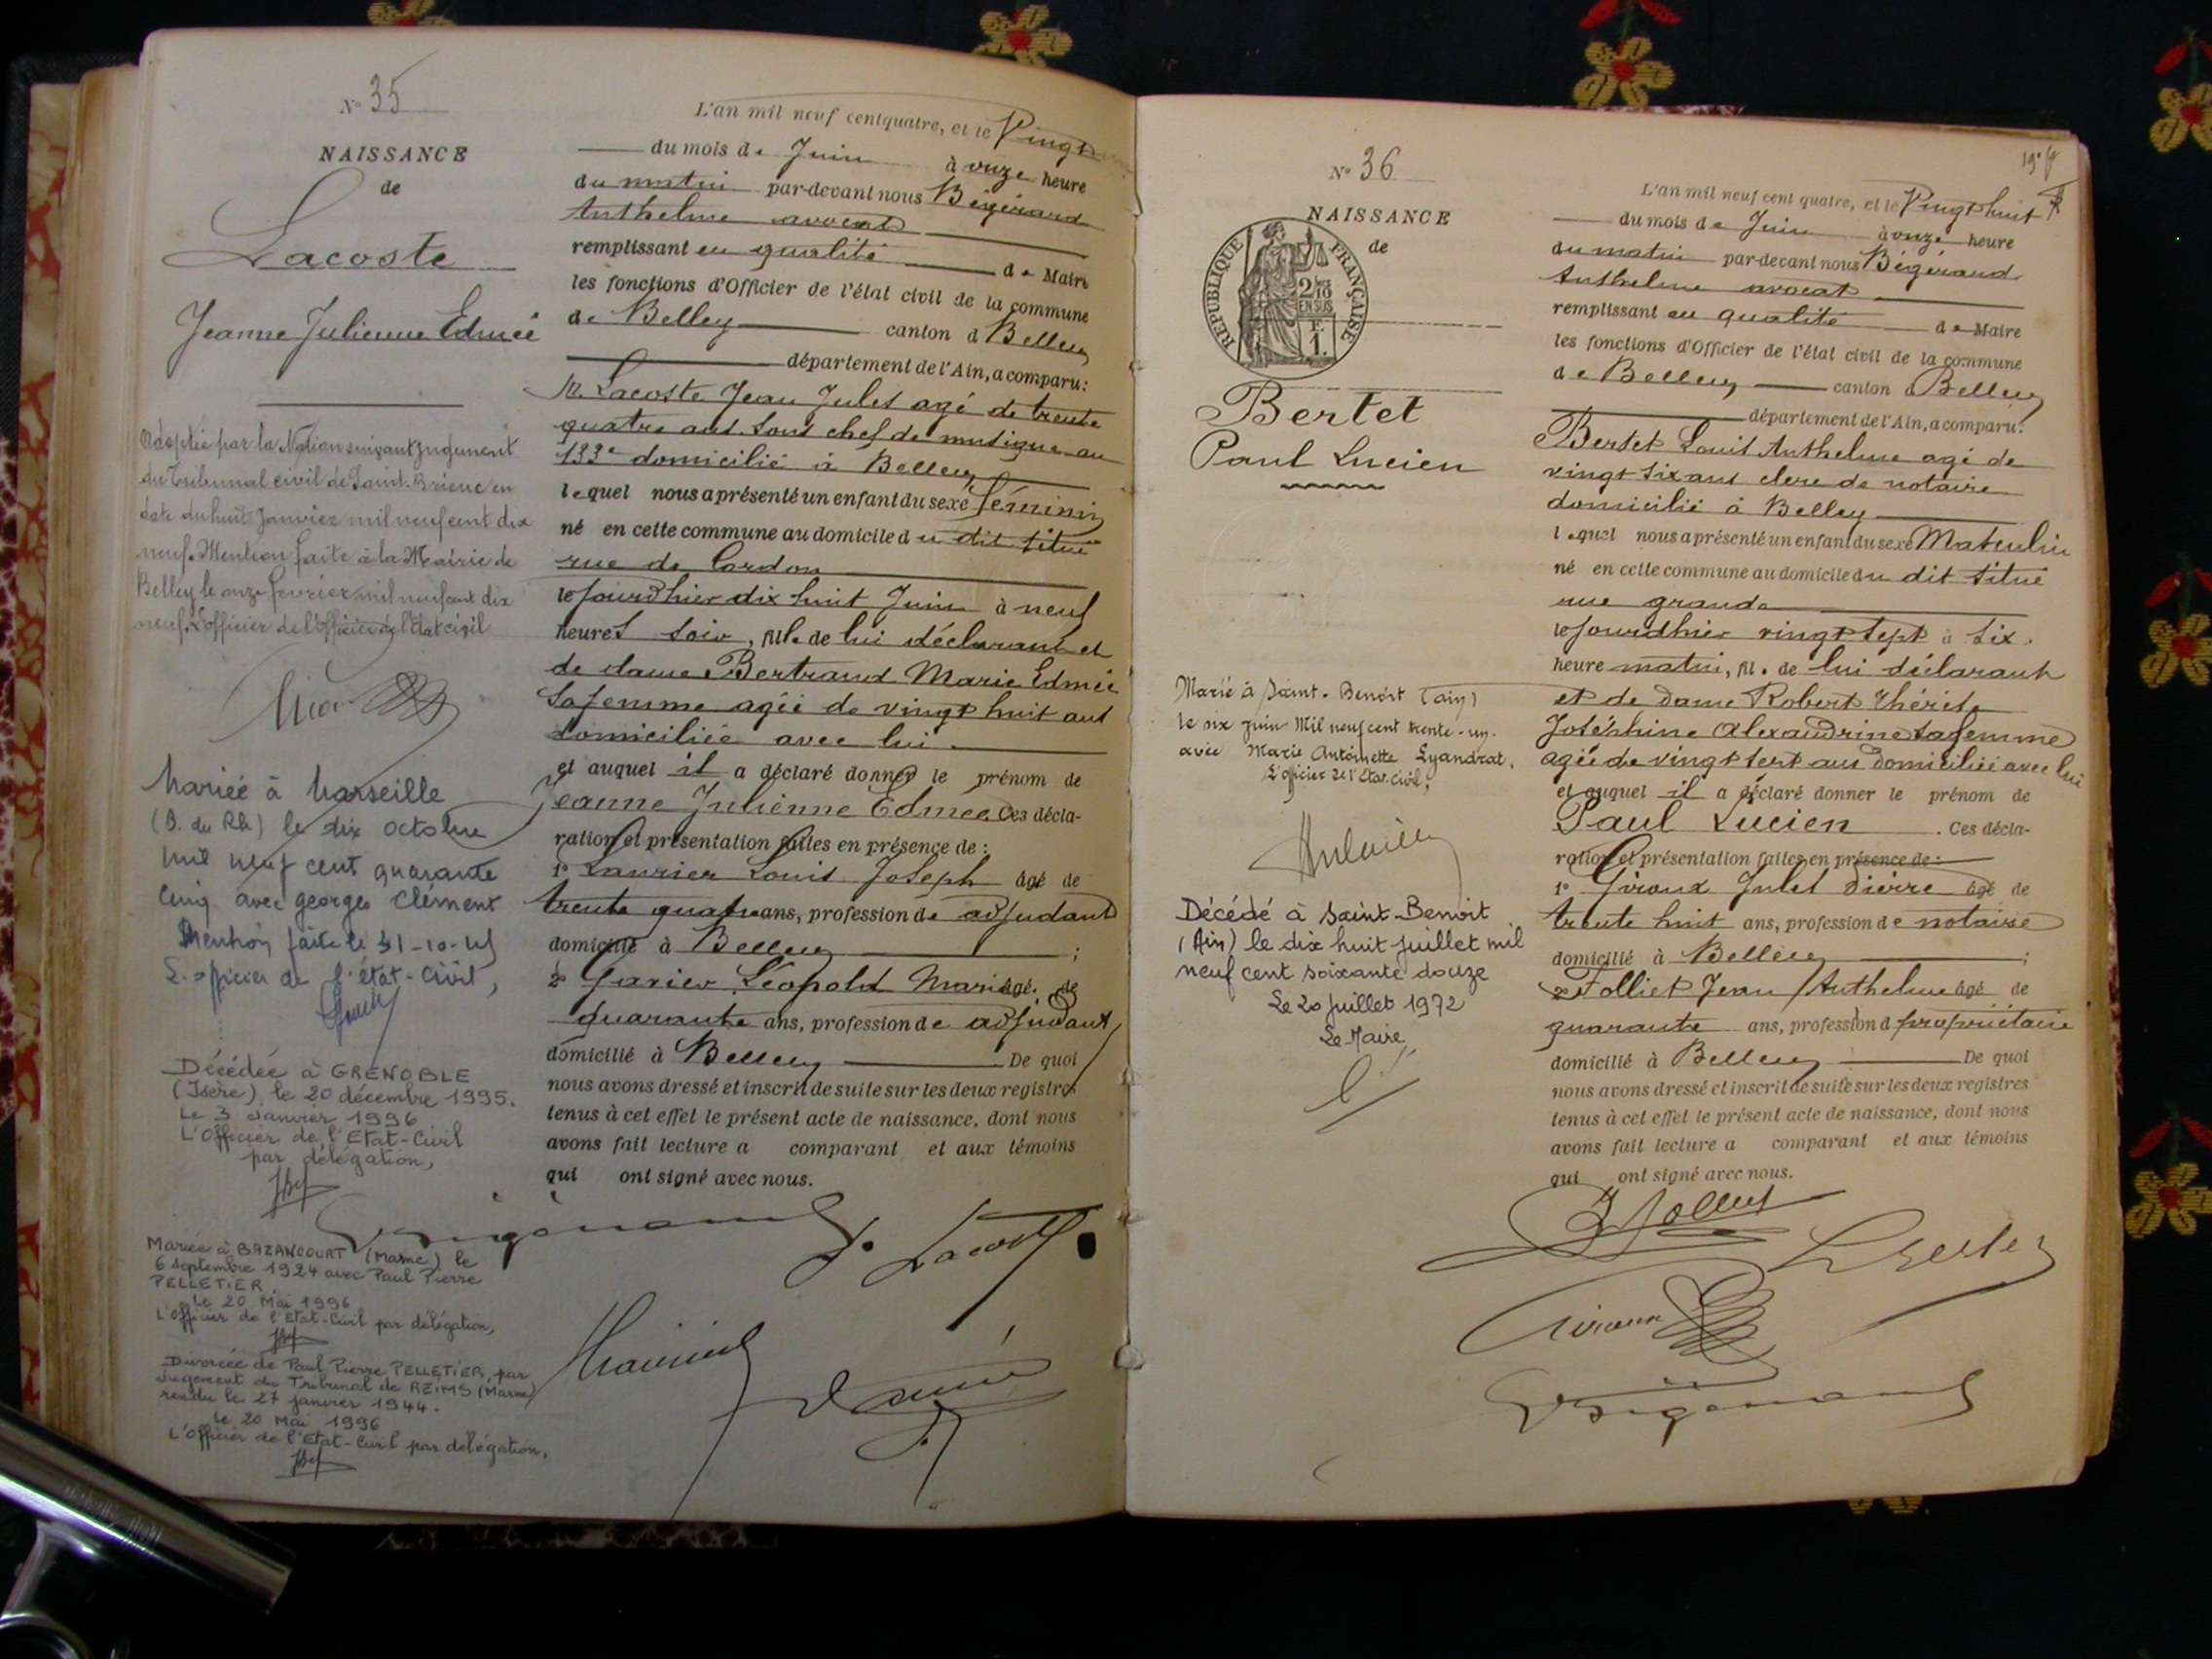 N° 35
NAISSANCE
de
Lacoste
Jeanne Julienne Edmée
Adoptée par la Nation suivant jugement
du Tribunal civil de Saint-Brieuc en
date du huit Janvier mil neuf cent dix
neuf. Mention faite à la Mairie de
Belley le onze février mil neuf cent dix
neuf. L'officier de l'Officier de l'Etat civil
Mariée à Marseille
(B. du Rh) le dix octobre
mil neuf cent quarante
cinq avec georges Clément
Mention faite le 31-10-45
L'officier de l'état-civil,
Décédée à GRENOBLE
(Isère), le 20 décembre 1995.
Le 3 Janvier 1996
L'Officier de l'Etat-Civil
par délégation,
Mariée à BAZANCOURT (Marne) le
6 septembre 1924 avec Paul Pierre
PELLETIER
Le 20 Mai 1996
L'Officier de l'Etat-Civil par délégation,
Divorcée de Paul Pierre PELLETIER, par
Jugement du Tribunal de REIMS (Marne)
rendu le 27 janvier 1944.
Le 20 Mai 1996
L'Officier de l'Etat-Civil par délégation,
L'an mil neuf cent quatre, et le Vingt
du mois de Juin à onze heure
du matin par-devant nous Bégérard
Anthelme avocat
remplissant en qualité de Maire
les fonctions d'Officier de l'état civil de la commune
de Belley canton d Belley
département de l'Ain, a comparu:
M. Lacoste Jean Jules agé de trente
quatre ans sous chef de musique au
133e domicilié à Belley
lequel nous a présenté un enfant du sexe féminin
né en cette commune au domicile du dit situé
rue de Cordon
le jourd'hier dix huit Juin à neuf
heures soir, fille de lui déclarant et
de dame Bertrand Marie Edmée
sa femme agée de vingt huit ans
domiciliée avec lui.
et auquel il a déclaré donner le prénom de
Jeanne Julienne Edmée. Ces décla-
ration et présentation faites en présence de:
1° Laurier Louis Joseph âgé de
trente quatre ans, profession de adjudant
domicilié à Belley ;
2° Garier Léopold Marie âgé de
quarante ans, profession de adjudant,
domicilié à Belley De quoi
nous avons dressé et inscrit de suite sur les deux registres
tenus à cet effet le présent acte de naissance, dont nous
avons fait lecture a comparant et aux témoins
qui ont signé avec nous.
J. Lacoste
N° 36
NAISSANCE
de
REPUBLIQUE FRANÇAISE
2/10
EN SUS
F.
1.
Bertet
Paul Lucien
Marié à Saint-Benoit (ain)
le six juin Mil neuf cent trente-un.
avec Marie Antoinette Lyandrat.
L'officier de l'Etat Civil,
Décédé à Saint-Benoit
(Ain) le dix huit Juillet mil
neuf cent soixante douze
Le 20 Juillet 1972
Le Maire
L'an mil neuf cent quatre, et le Vingt huit
du mois de Juin à onze heure
du matin par-devant nous Bégérard
Anthelme avocat
remplissant en qualité de Maire
les fonctions d'Officier de l'état civil de la commune
de Belley canton d Belley
département de l'Ain, a comparu:
Bertet Louis Anthelme agé de
vingt six ans clerc de notaire
domicilié à Belley
lequel nous a présenté un enfant du sexe Masculin
né en cette commune au domicile du dit situé
rue grande
le jourdhier vingt sept à six.
heure matin, fil. de lui déclarant
et de dame Robert Thérèse
Joséphine Alexandrine sa femme
agée de vingt sept ans domiciliée avec lui
et auquel il a déclaré donner le prénom de
Paul Lucien . Ces décla-
ration et présentation faites en présence de:
1° Giroux Jules Pierre âgé de
trente huit ans, profession de notaire
domicilié à Belley ;
2° Folliet Jean Anthelme âgé de
quarante ans, profession d propriétaire
domicilié à Belley De quoi
nous avons dressé et inscrit de suite sur les deux registres
tenus à cet effet le présent acte de naissance, dont nous
avons fait lecture a comparant et aux témoins
qui ont signé avec nous.
Giroux